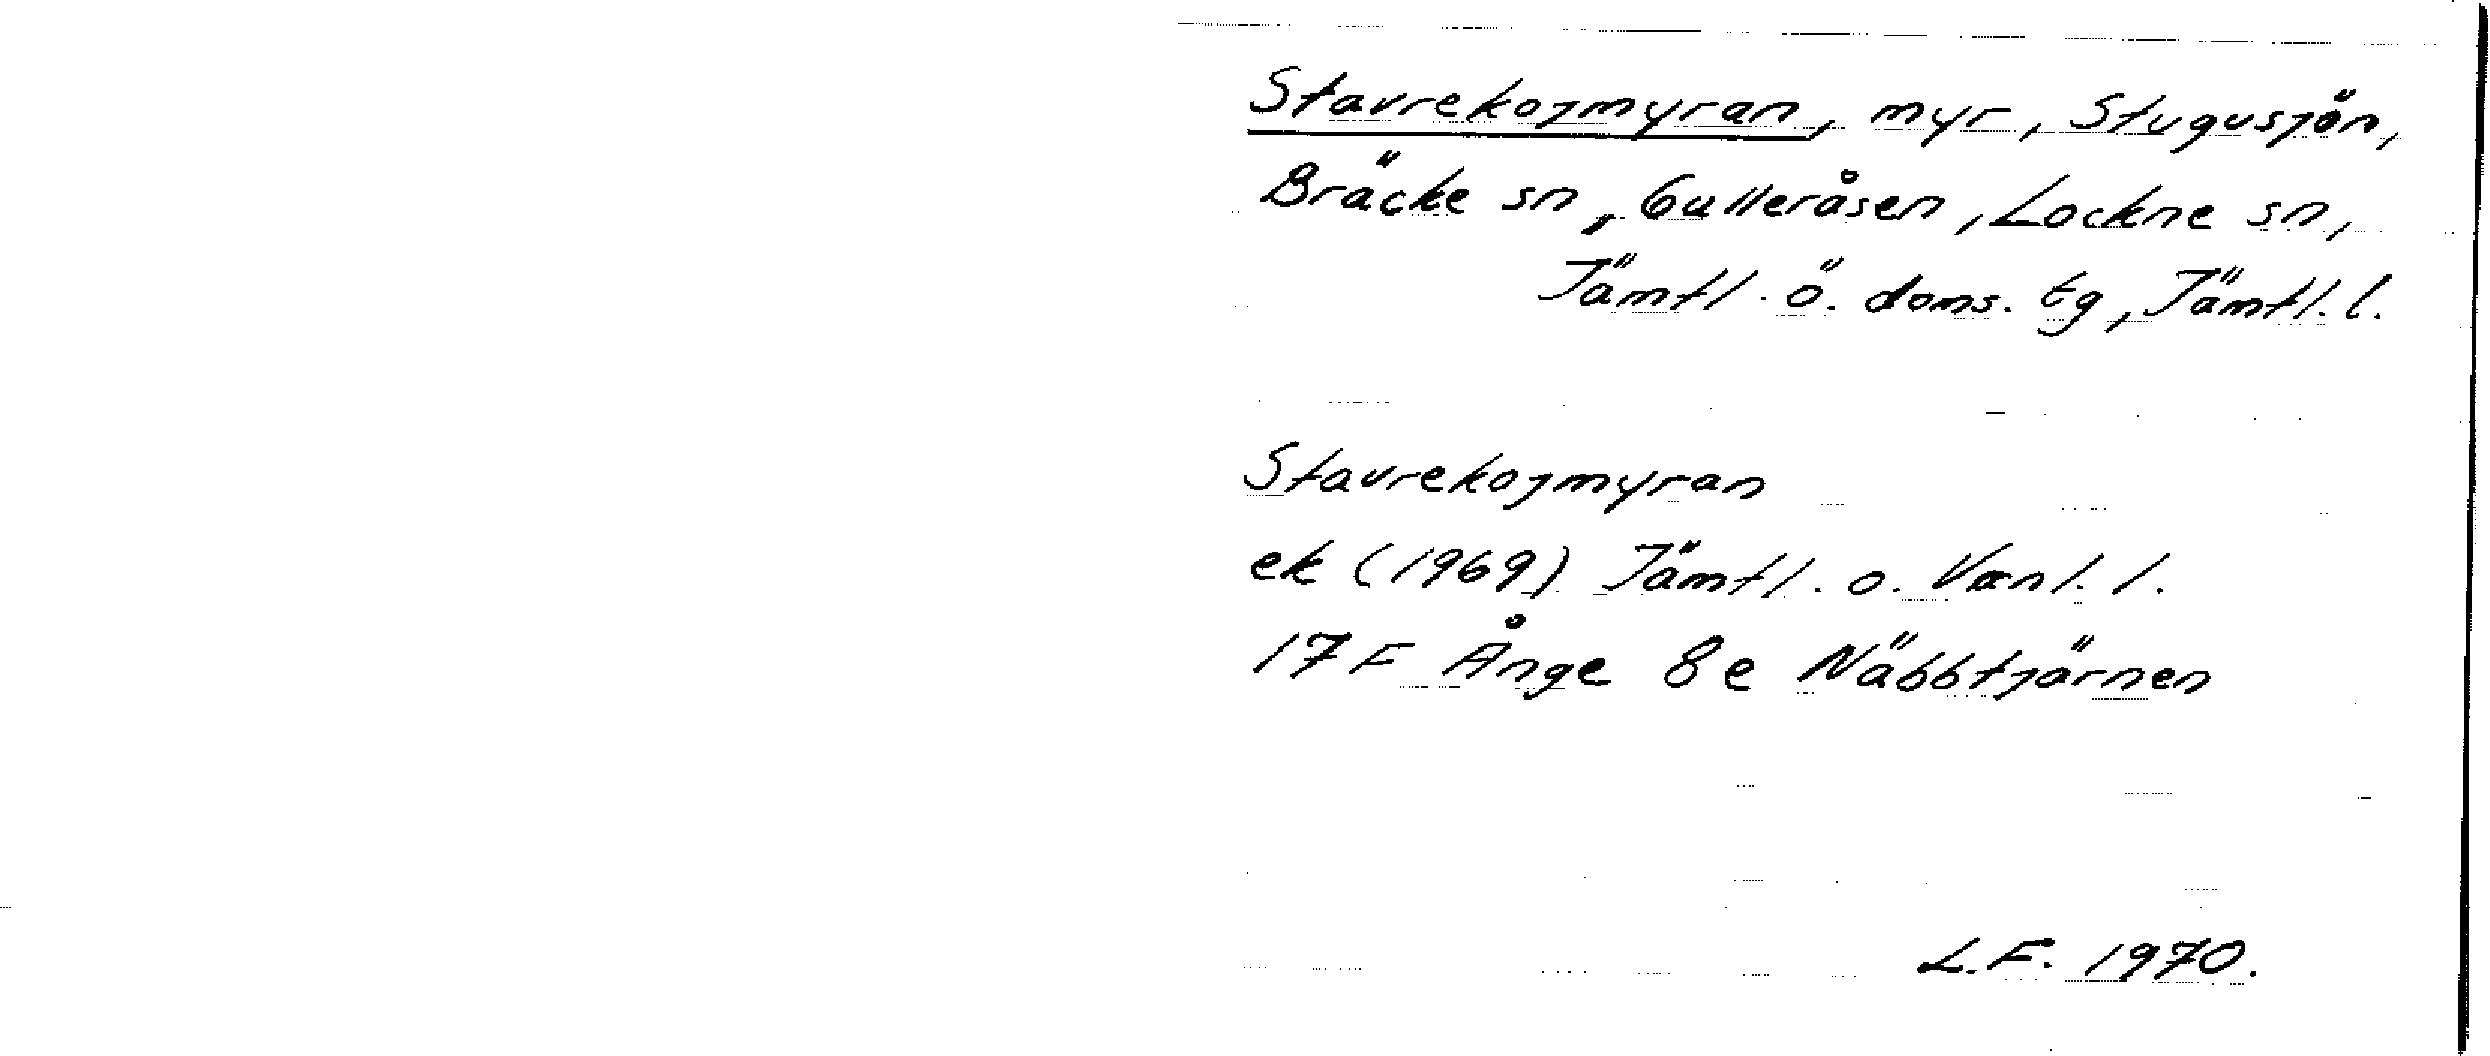 Stavrekojmyran, myr, Stugusjön,
Bräcke sn, Gulleråsen, Lockne sn,
Jämtl. ö. doms. tg, Jämtl. l.
Stavrekojmyran
ek (1969) Jämtl. o. Vänl. l.
17 F Ånge 8 e Näbbtjärnen
L.F. 1970.